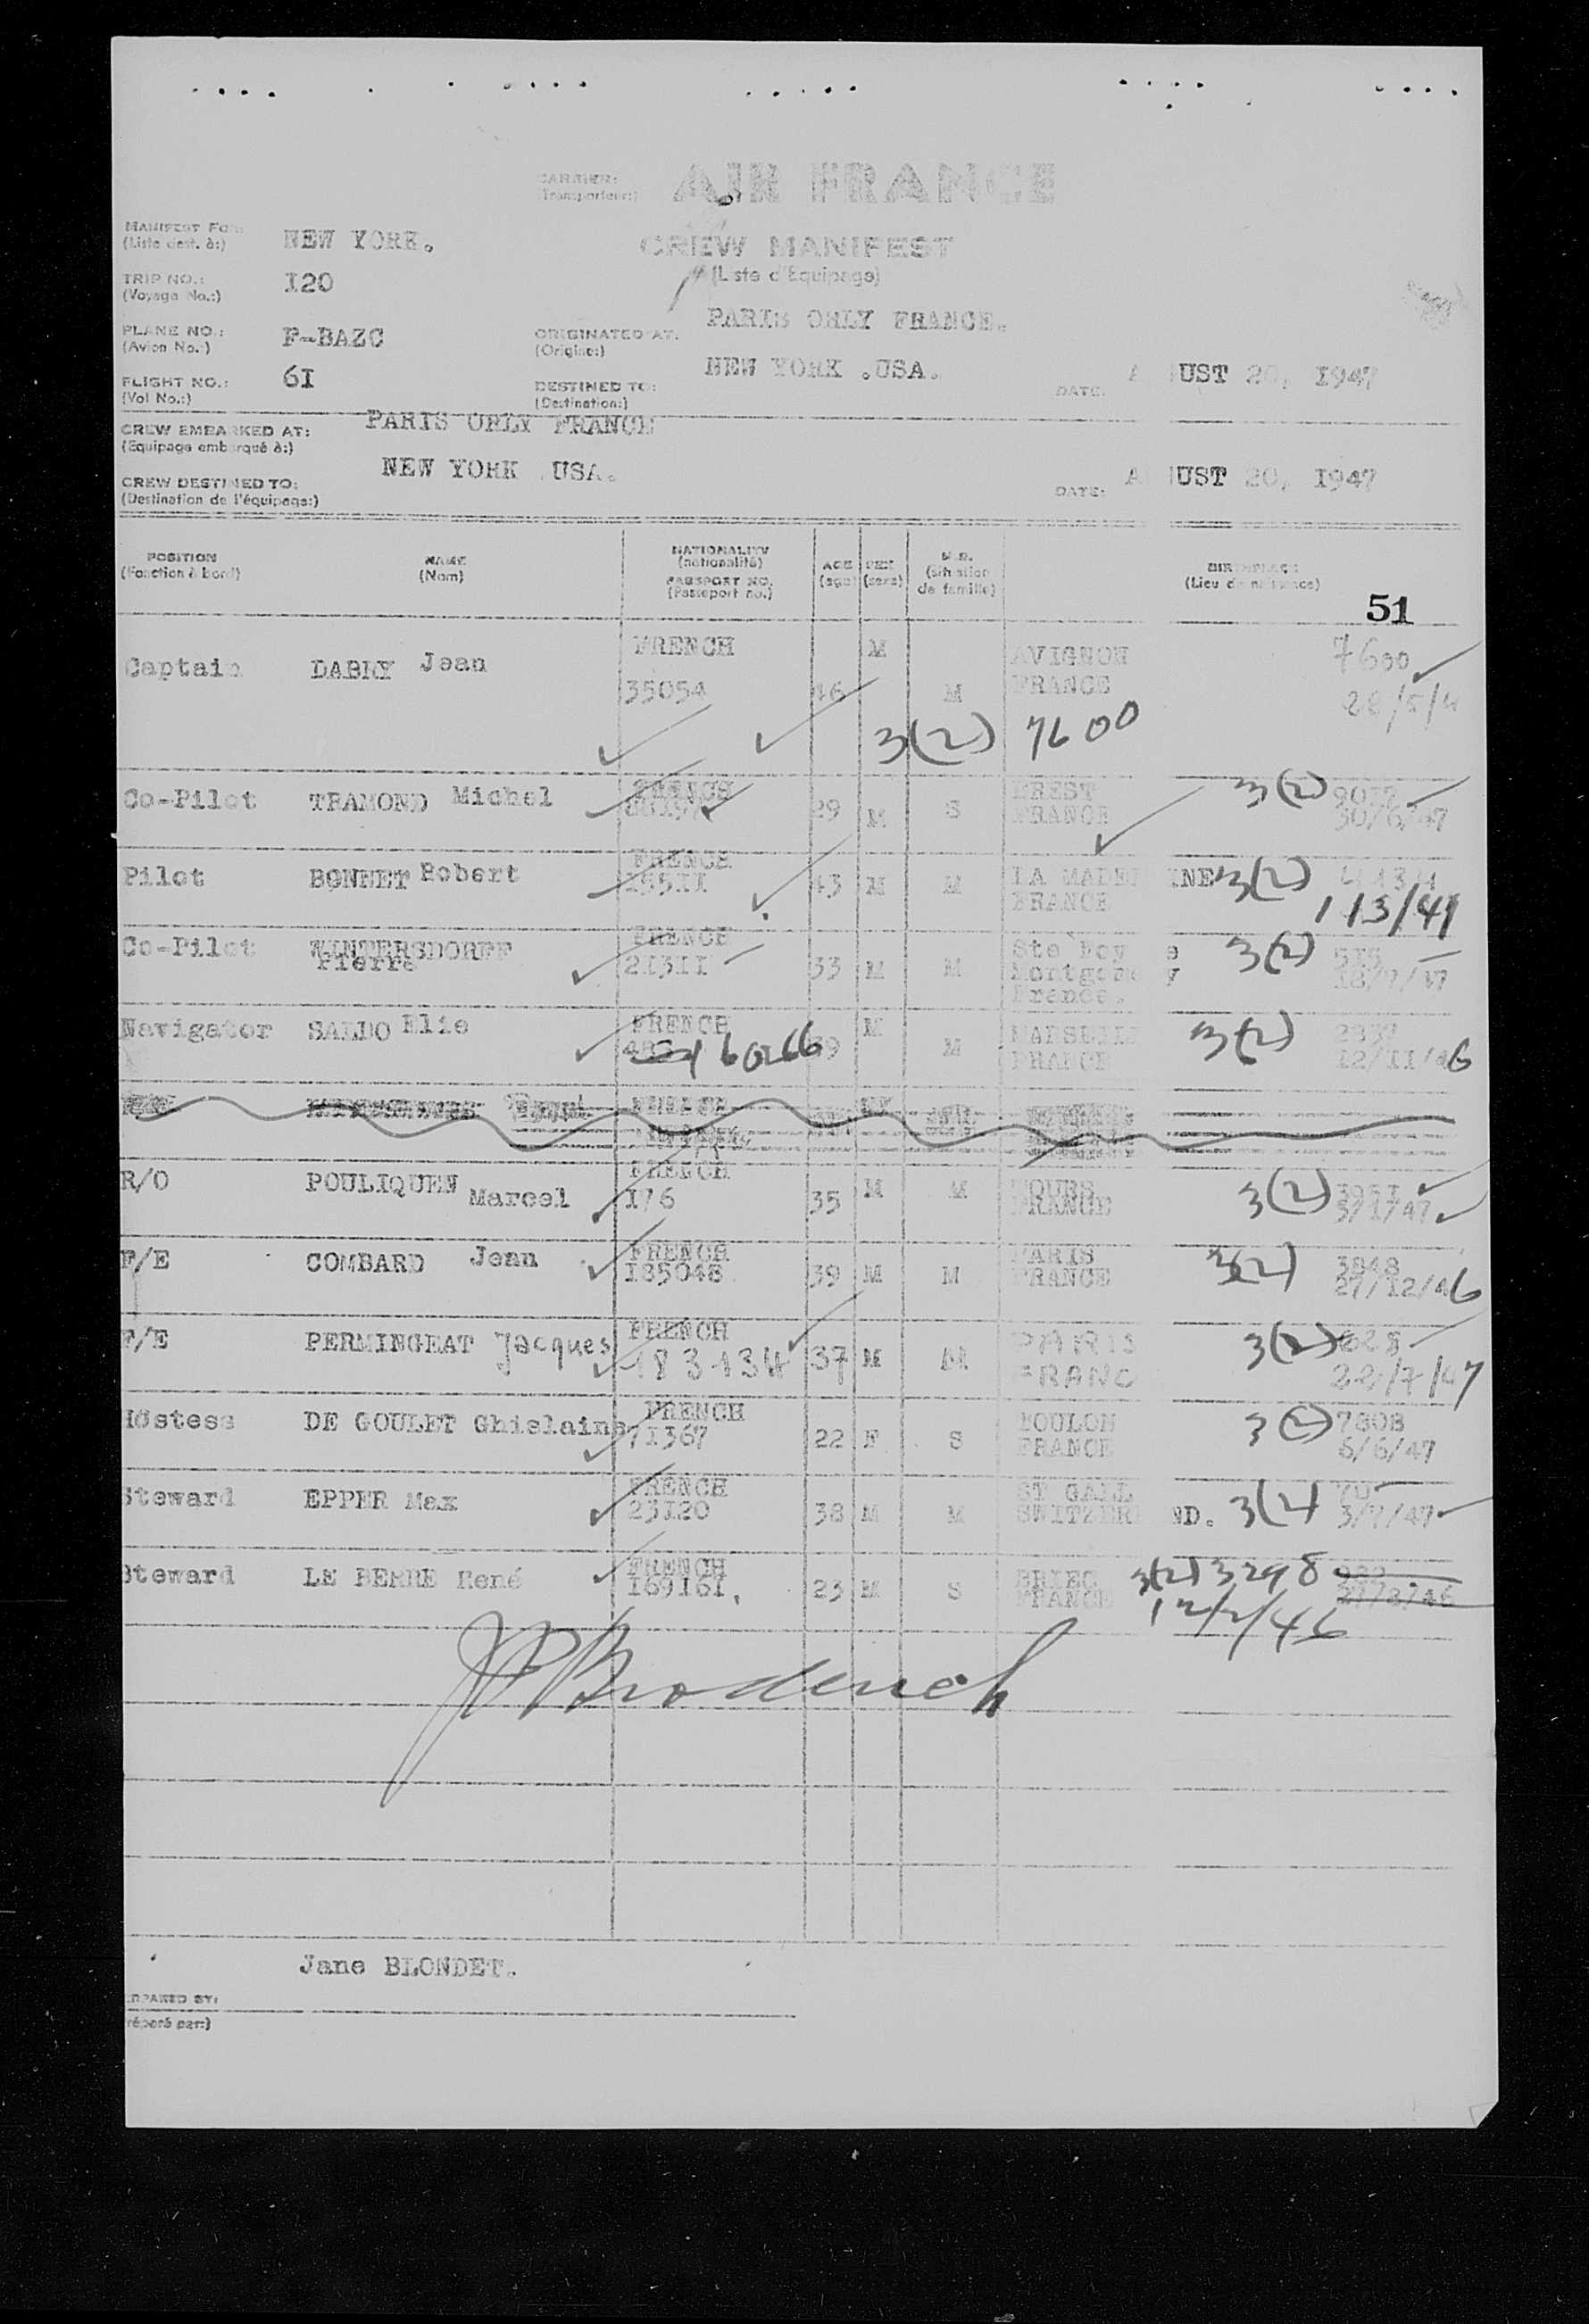 CARRIER: AIR FRANCE
(Transporteur:)
MANIFEST FOR: NEW YORK.
(Liste dest. à:)
CREW MANIFEST
(Liste d'Equipage)
TRIP NO.: I20
(Voyage No.:)
PLANE NO.: F-BAZC
(Avion No.:)
ORIGINATED AT: PARIS ORLY FRANCE.
(Origine:)
FLIGHT NO.: 6I
(Vol No.:)
DESTINED TO: NEW YORK .USA.
(Destination:)
DATE: A UST 20, I947
CREW EMBARKED AT: PARIS ORLY FRANCE
(Equipage embarqué à:)
CREW DESTINED TO: NEW YORK .USA.
(Destination de l'équipage:)
DATE: A UST 20, I947
POSITION NAME NATIONALITY AGE SEX M.S. BIRTHPLACE
(Fonction à bord) (Nom) (nationalité) (age) (sexe) (situation de famille) (Lieu de naissance)
PASSPORT NO.
(Passeport no.)
51
Captain DABRY Jean FRENCH M AVIGNON 7600
35054 46 M FRANCE
3(2) 7600
Co-Pilot TRAMOND Michel FRENCH 29 M S BREST 3(2)
FRANCE 30/6/47
Pilot BONNET Robert FRENCH 43 M M LA MADE INE 3(2)
FRANCE
Co-Pilot WINTERSDORFF FRENCH Ste Foy e 3(2)
Pierre 2I3II 33 M M Montgome y
France.
Navigator SALBO Elie FRENCH M 3(2) 2337
60266 39 M FRANCE I2/II/46
R/O POULIQUEN Marcel FRENCH M M TOURS 3(2)
I76 35 FRANCE 3/I/47
F/E COMBARD Jean FRENCH PARIS 3(2) 3848
I85048 39 M M FRANCE 27/I2/46
F/E PERMINGEAT Jacques FRENCH PARIS 3(2)
183134 37 M M FRANC 22/7/47
Hostess DE GOULET Ghislaine FRENCH TOULON 3(2) 7808
7I367 22 F S FRANCE 6/6/47
Steward EPPER Max FRENCH ST GALL 3(2)
23I20 38 M M SWITZER ND. 3/7/47
Steward LE BERRE René FRENCH BRIEC 3(2) 3298
I69I6I. 23 M S FRANCE 27/8/46
12/2/46
Jane BLONDET.
PREPARED BY:
(préparé par:)